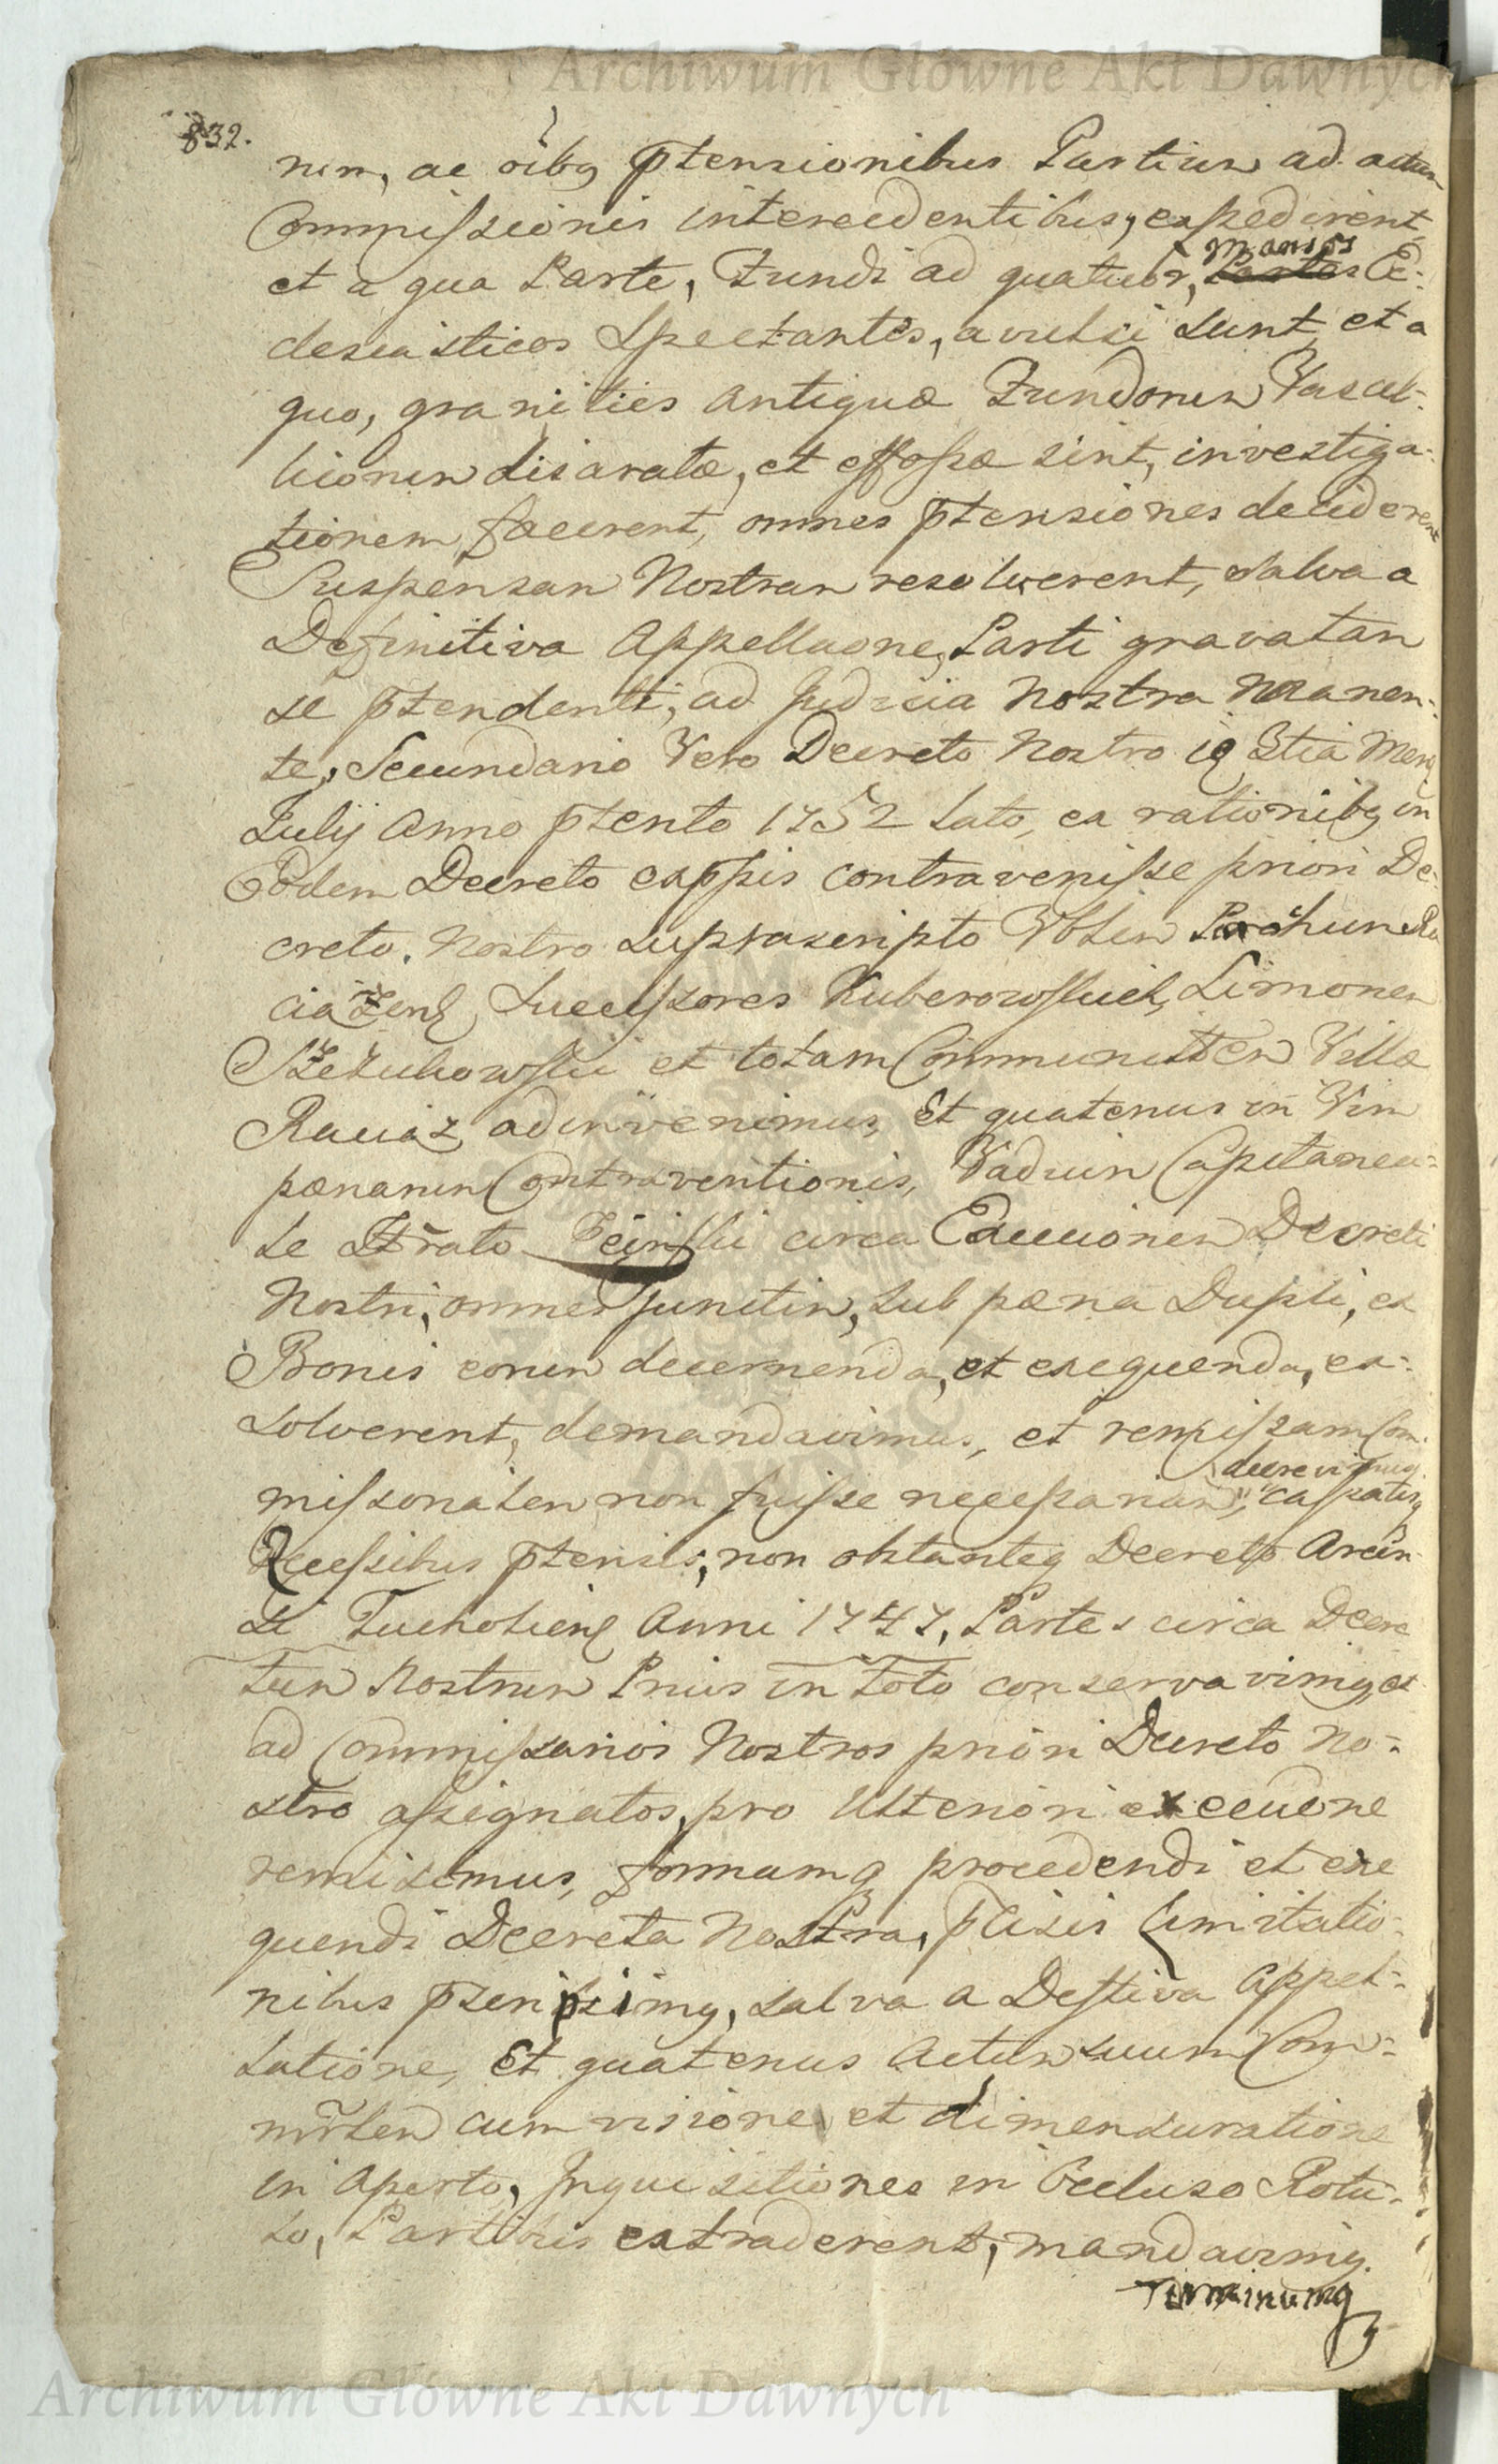 Archiwum Główne Akt Dawnych
832.
num, ac oibq ptensionibus Partium ad actum
Commissionis intercedentibus, expedirent
et a qua Parte, Fundi ad quatuor, Mansos Ec:
clesiasticos Spectantes, avulsi sunt, et a
quo, granities antiquæ Fundorum Vascel:
lionum disaratæ, et effossæ sint, investiga:
tionem facerent, omnes ptensiones deciderent
Suspensam Nostram resolverent, Salva a
Definitiva Appellaone, Parti gravatam
se ptendenti, ad Judicia Nostra Manen:
te, Secundario Vero Decreto Nostro Mens
Julij Anno ptento 1752 lato, ex rationibq in
Eodem Decreto expssis contravenisse priori De:
creto. Nostro suprascripto Parochum Ra
ciążens, Successores Kuberowskich, Simonem
et totam Communittem Villæ
Raciąz adinvenimus, Et quatenus in Vim
pænarum Contraventionis, Vadium Capitanea:
le circa Exeucionem Decreti
Nostri, omnes junctim, sub pæna Dupli, ex
Bonis eorum decernenda, et exequenda, ex:
solverent, demandavimus, et remissam Com:
missorialem non fuisse necessariam, decrevimus, cassatisq
Recessibus ptensis, non obstanteq Decreto
si Tucholiens Anni 1747, Partes circa Decre
tum Nostrum Prius in Toto conservavimq, et
ad Commissarios Nostros priori Decreto No:
stro assignatos, pro Ulteriori execuone
remisimus, formamq procedendi et exe
quendi Decreta Nostra, pcisis Limitatio:
nibus pscripsimq, salva a Deftiva Appel:
latione, Et quatenus Actum suum Com:
mrlem cum visione et dimensuratione
in Aperto, Inquisitiones in Occluso Rotu:
lo, Partibus extraderent, mandavimq.
Terminumq
Archiwum Główne Akt Dawnych